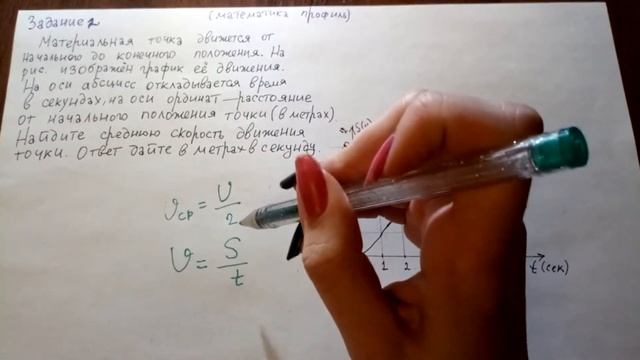 Задание 2
(математика профиль)
Материальная точка движется от
начального до конечного положения. На
рис. изображён график её движения.
На оси абсцисс откладывается время
в секундах, на оси ординат — расстояние
от начального положения точки (в метрах).
Найдите среднюю скорость движения
точки. Ответ дайте в метрах в секунду.
υср = υ/2
υ = S/t
1 2 t(сек)